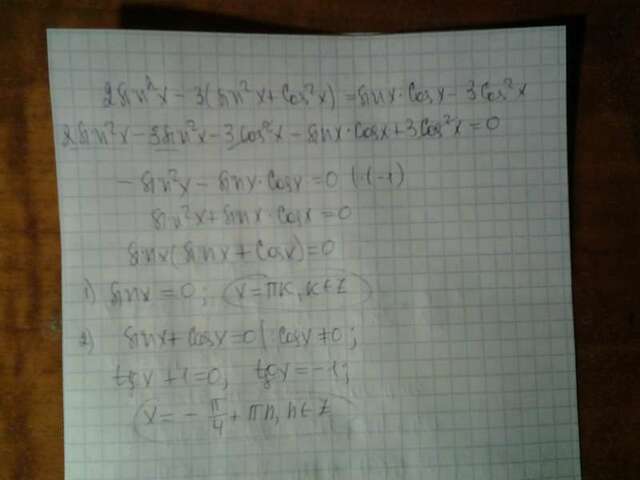 2sin²x - 3(sin²x + cos²x) = sinx·cosx - 3cos²x
2sin²x - 3sin²x - 3cos²x - sinx·cosx + 3cos²x = 0
- sin²x - sinx·cosx = 0 |·(-1)
sin²x + sinx·cosx = 0
sinx(sinx + cosx) = 0
1) sinx = 0; x = πk, k∈Z
2) sinx + cosx = 0 | : cosx ≠ 0;
tgx + 1 = 0; tgx = -1;
x = - π/4 + πn, n∈Z